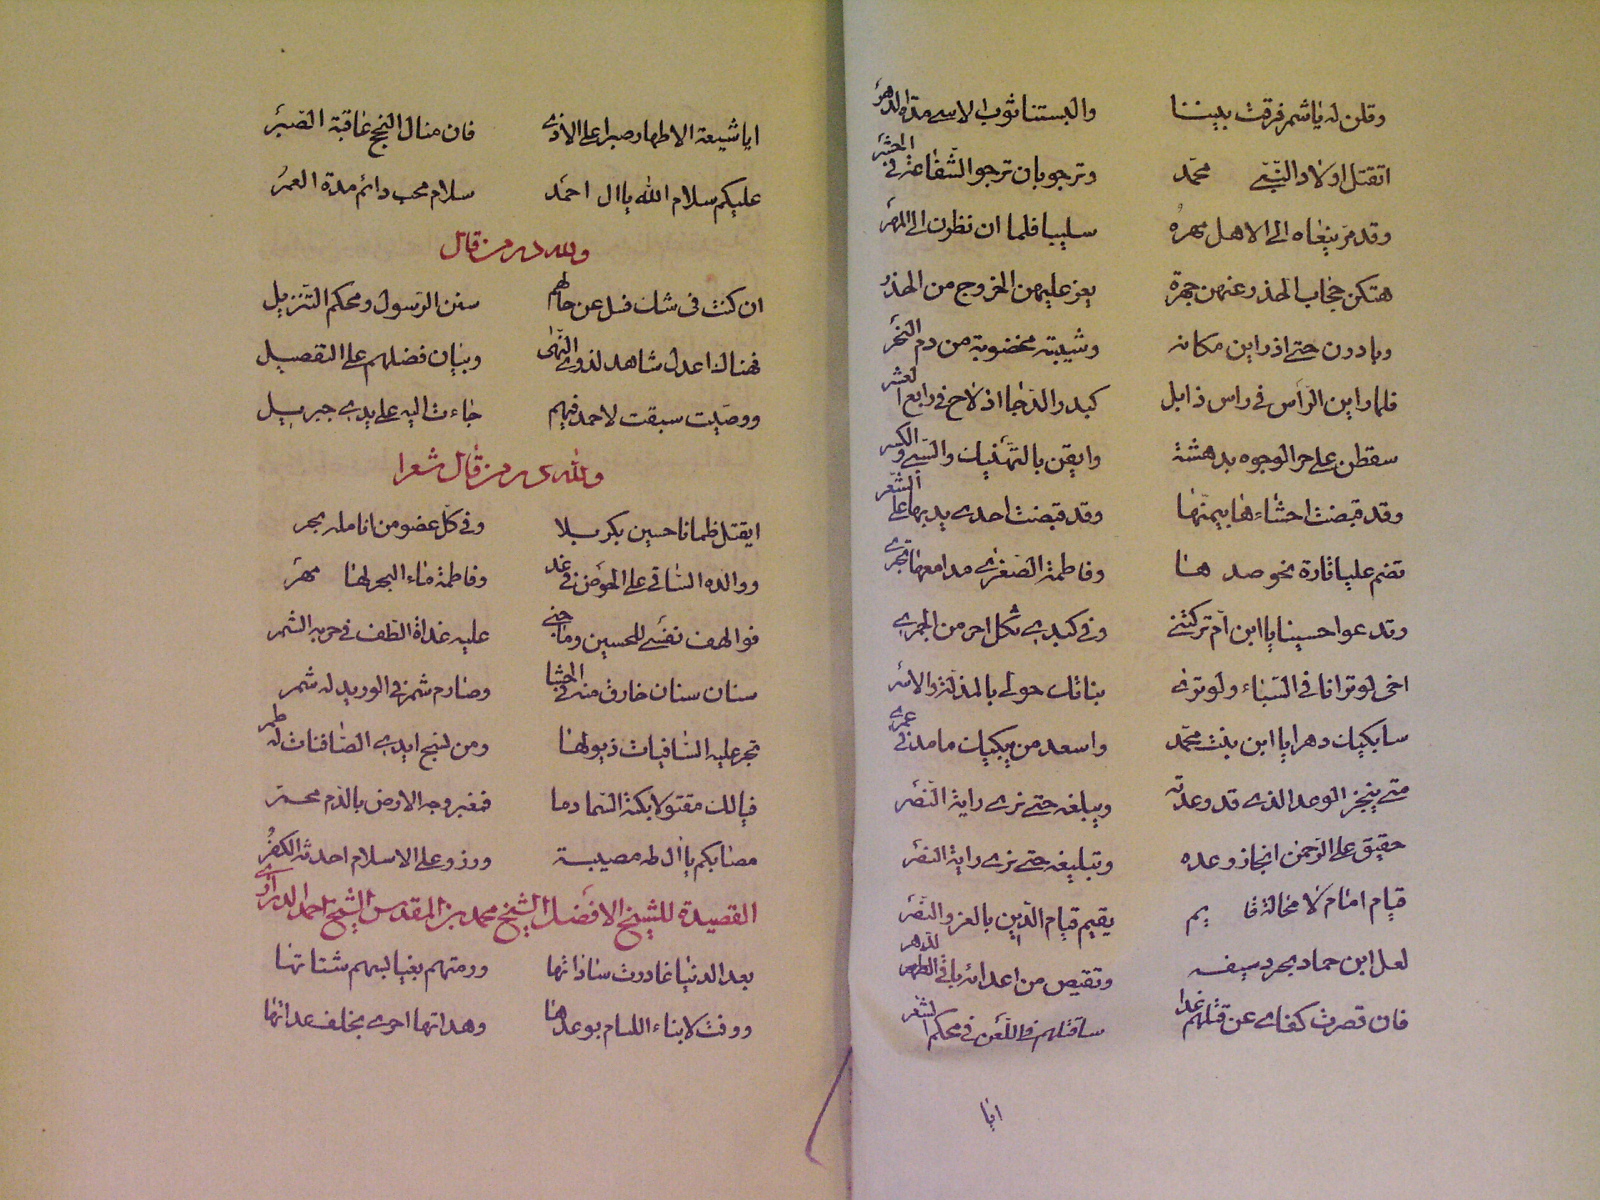 وقلن له يا شمر فرقت بيننا والبستنا ثوب الاسى مدة الدهر
اتقتل اولاد النبي محمد وترجو بان ترجو الشفاعة في الحشر
وقد مر ينعاه الى الاهل مهره سليبا فلما ان نظرن الى المهر
هتكن حجاب الخدر عنهن جهرة يعز عليهن الخروج من الخدر
وبادرن حتى اذ راين مكانه وشيبته مخضوبة من دم النحر
فلما راين الراس في راس ذابل كبدر الدجا اذ لاح في رابع العشر
سقطن على حر الوجوه بدهشة وايقن بالتهتيك والسبي والكسر
وقد قبضت احشاءها بيمينها وقد قبضت احدى يديها على الشعر
تضم عليا تارة نحو صدرها وفاطمة الصغرى مدامعها تجرى
وتدعو حسينا يا ابن ام تركتني وفي كبدي ثكل احر من الجمرى
اخى لو ترانا في السباء ولو ترى بناتك حولى بالمذلة والاسر
سابكيك دهرا يا ابن بنت محمد واسعد من يبكيك ما مد في عمرى
متى ينجز الوعد الذى قد وعدته ويبلغه حتى نرى راية النصر
حقيق على الرحمن انجاز وعده وتبليغه حتى نرى راية النصر
قيام امام لا محالة قايم يقيم قيام الدين بالعز والنصر
لعل ابن حماد يجرد سيفه وتقيص من اعدائه باقي الدهر
فان قصرت كفاى عن قتلهم غدا ساقتلهم في اللعن في محكم الشعر
ايا
ايا شيعة الاطهار صبرا على الاذى فان منال النجح عاقبة الصبر
عليكم سلام الله يا ال احمد سلام محب دائم مدة العمر
ولله در من قال
ان كنت في شك فسل عن حالهم سنن الرسول ومحكم التنزيل
فهناك اعدل شاهد لذوى النهى وبيان فضلهم على التفصيل
ووصيت سبقت لاحمد فيهم جاءت اليه على يدي جبرييل
ولله در من قال شعرا
ايقتل ظمانا حسين بكربلا وفي كل عضو من انامله بحر
ووالده الساقي على الحوض في غد وفاطمة ماء البحر لها مهر
فوالهف نفسي للحسين وما جنى عليه غداة الطف في حربه الشمر
سنان سنان خارق منه في الحشا وصارم شمر في الوريد له شمر
تجر عليه السافيات ذيولها ومن نسج ايدي الصافنات له طمر
فيالك مقتولا بكته السما دما فمغبر وجه الارض بالدم محمر
مصابكم يا ال طه مصيبة ورزو على الاسلام احدثه الكفر
القصيدة للشيخ الافضل الشيخ محمد بن المقدس الشيخ احمد الدرازي
بعد الدنيا غادرت ساداتها ورمتهم بغيا لسهم شتاتها
ووفت لابناء اللئام بوعدها وهداتها اجرى بخلف عداتها